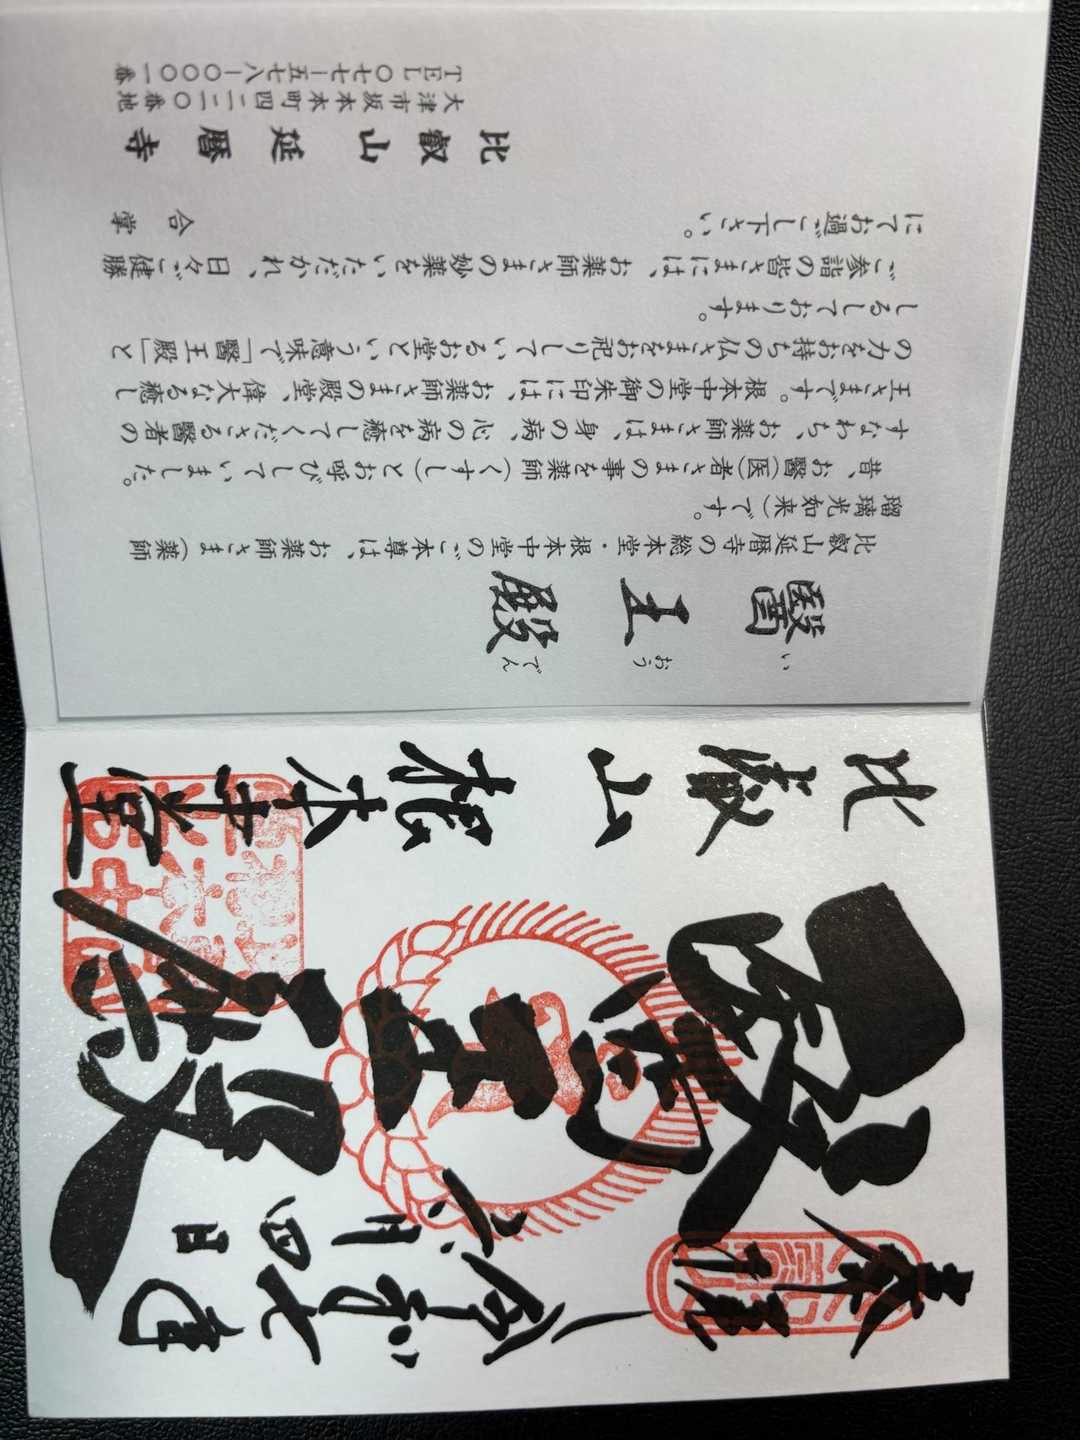 醫王殿
いおうでん
比叡山延暦寺の総本堂・根本中堂のご本尊は、お薬師さま(薬師
瑠璃光如来)です。
昔、お醫(医)者さまの事を薬師(くすし)とお呼びしていました。
すなわち、お薬師さまは、身の病、心の病を癒してくださる醫者の
王さまです。根本中堂の御朱印には、お薬師さまの殿堂、偉大なる癒し
の力をお持ちの仏さまをお祀りしているお堂という意味で「醫王殿」と
しるしております。
ご参詣の皆さまには、お薬師さまの妙薬をいただかれ、日々ご健勝
にてお過ごし下さい。
合掌
比叡山延暦寺
大津市坂本本町四二二〇番地
TEL〇七七―五七八―〇〇〇一番
奉拝
令和七年
六月四日
醫王殿
比叡山 根本中堂